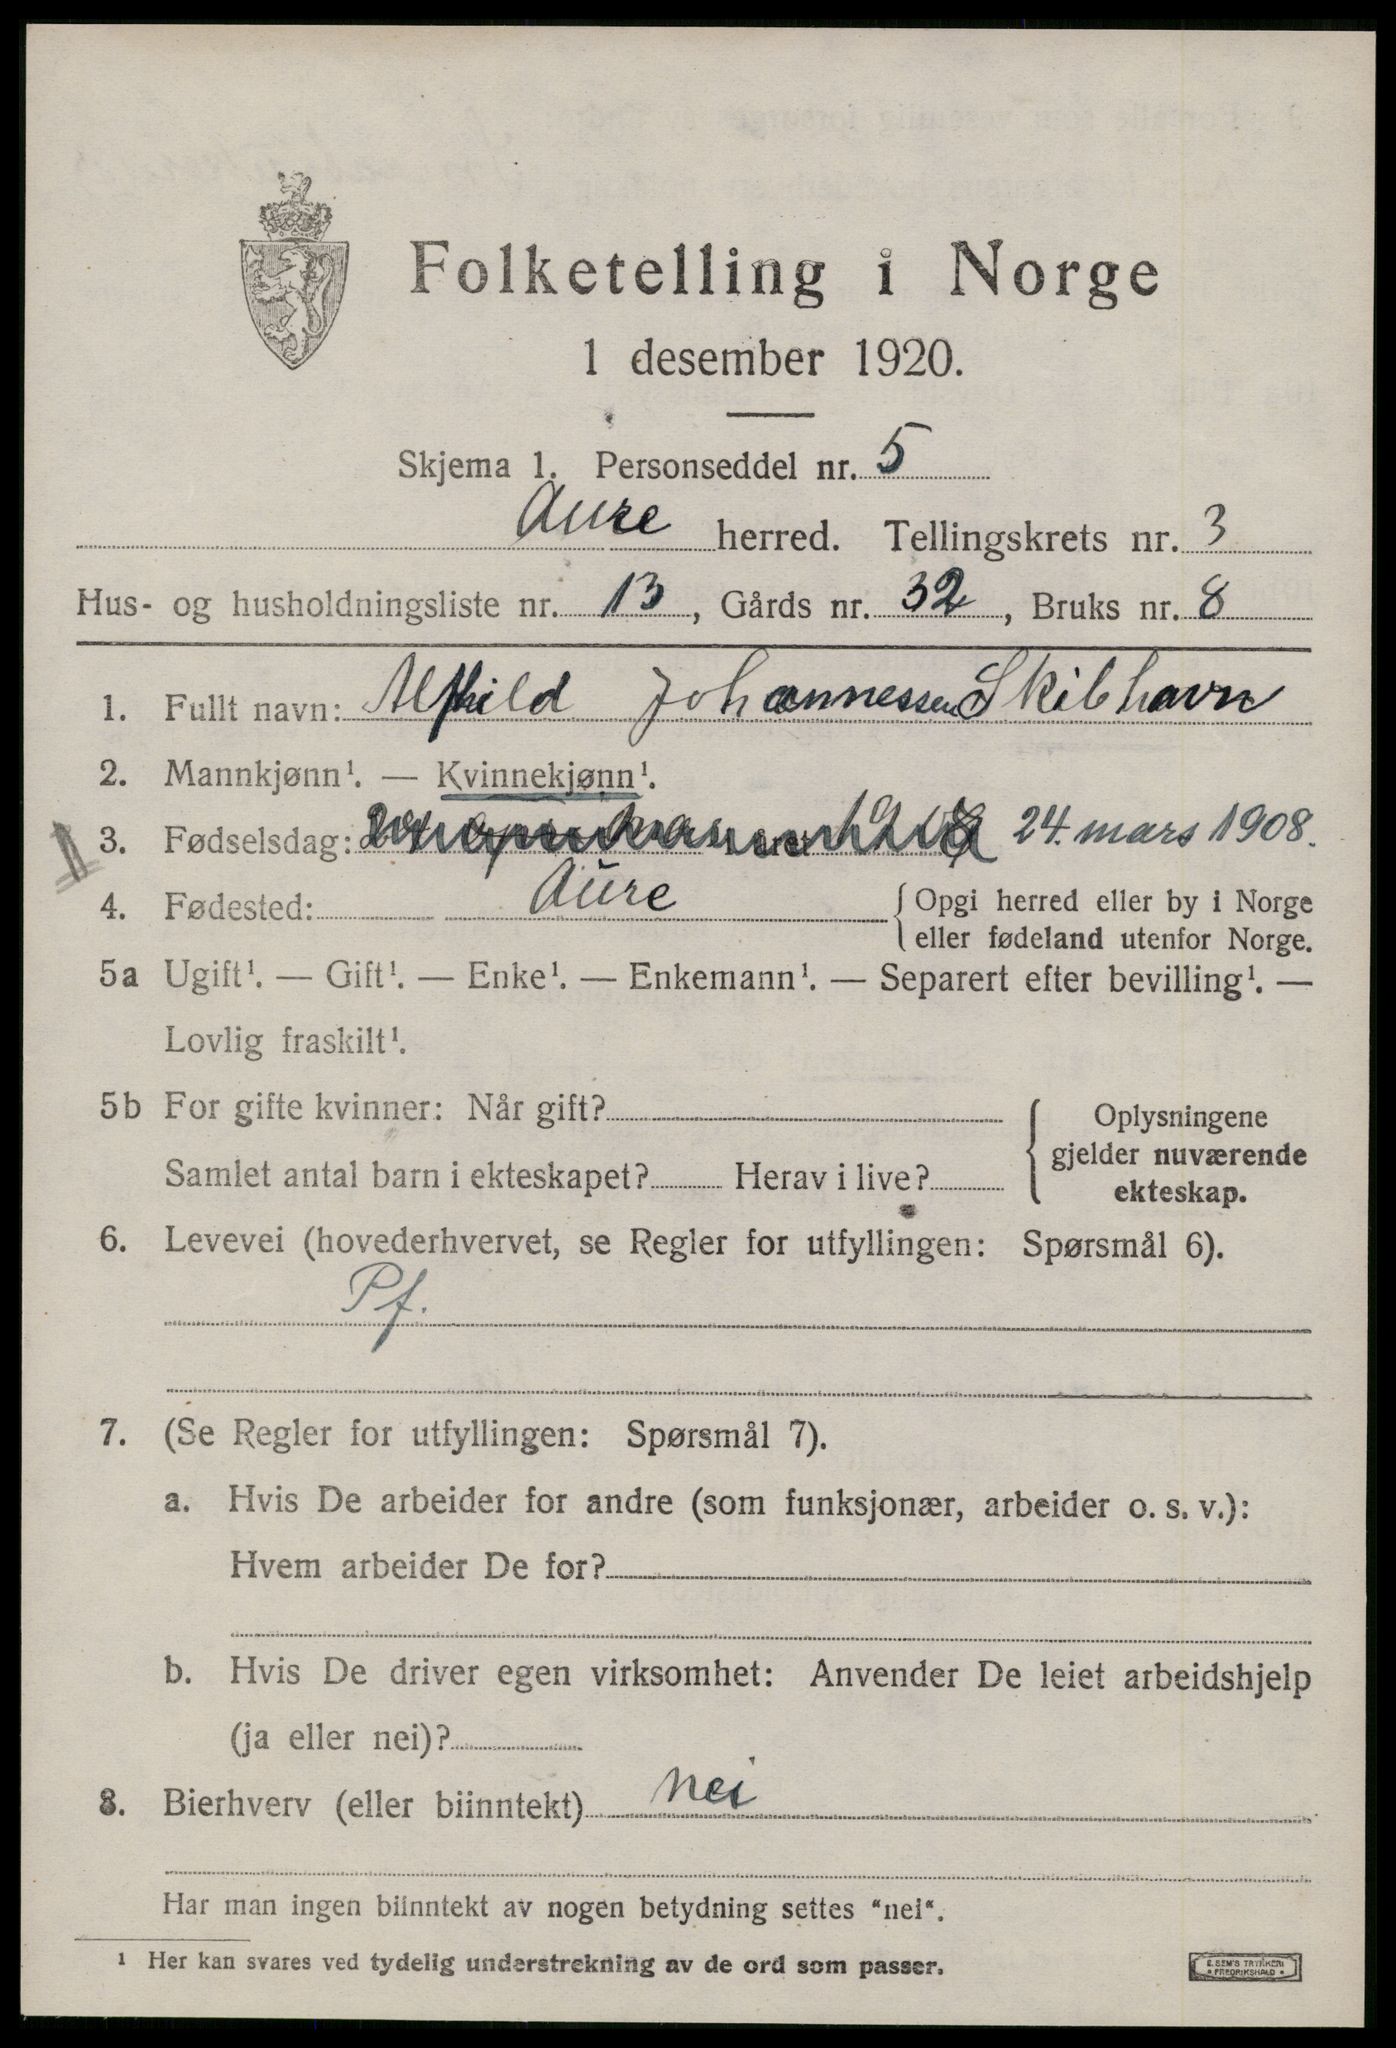 Folketelling i Norge
1 desember 1920.
Skjema 1. Personseddel nr. 5
Aure herred. Tellingskrets nr. 3
Hus- og husholdningsliste nr. 13, Gårds nr. 32, Bruks nr. 8
1. Fullt navn: Alfhild Johannessen Skibhavn
2. Mannkjønn¹. — Kvinnekjønn¹.
3. Fødselsdag: 24. mars 1908.
4. Fødested: Aure { Opgi herred eller by i Norge
eller fødeland utenfor Norge.
5a Ugift¹. — Gift¹. — Enke¹. — Enkemann¹. — Separert efter bevilling¹. —
Lovlig fraskilt¹.
5b For gifte kvinner: Når gift?
Samlet antal barn i ekteskapet? Herav i live?
Oplysningene
gjelder nuværende
ekteskap.
6. Levevei (hovederhvervet, se Regler for utfyllingen: Spørsmål 6).
Pf.
7. (Se Regler for utfyllingen: Spørsmål 7).
a. Hvis De arbeider for andre (som funksjonær, arbeider o. s. v.):
Hvem arbeider De for?
b. Hvis De driver egen virksomhet: Anvender De leiet arbeidshjelp
(ja eller nei)?
8. Bierhverv (eller biinntekt) nei
Har man ingen biinntekt av nogen betydning settes "nei".
¹ Her kan svares ved tydelig understrekning av de ord som passer.
E. SEM'S TRYKKERI
FREDRIKSHALD